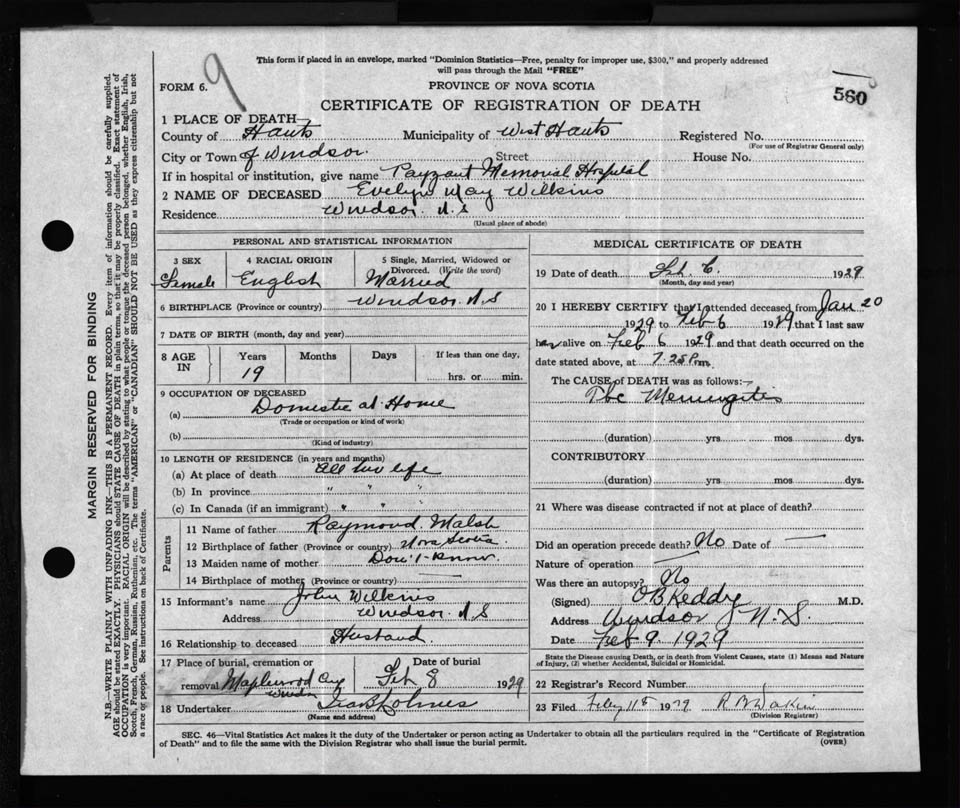 This form if placed in an envelope, marked "Dominion Statistics—Free, penalty for improper use, $300," and properly addressed
will pass through the Mail "FREE"
FORM 6. 9
PROVINCE OF NOVA SCOTIA
CERTIFICATE OF REGISTRATION OF DEATH
560
1 PLACE OF DEATH
County of Hants Municipality of West Hants Registered No.
(For use of Registrar General only)
City or Town of Windsor. Street House No.
If in hospital or institution, give name Payzant Memorial Hospital
2 NAME OF DECEASED Evelyn May Wilkins
Residence Windsor. N.S
(Usual place of abode)
PERSONAL AND STATISTICAL INFORMATION
3 SEX 4 RACIAL ORIGIN 5 Single, Married, Widowed or
Divorced. (Write the word)
Female English Married
6 BIRTHPLACE (Province or country) Windsor. N.S
7 DATE OF BIRTH (month, day and year)
8 AGE IN Years Months Days If less than one day,
19 hrs. or min.
9 OCCUPATION OF DECEASED
(a) Domestic at Home
(Trade or occupation or kind of work)
(b)
(Kind of industry)
10 LENGTH OF RESIDENCE (in years and months)
(a) At place of death All her life
(b) In province " " "
(c) In Canada (if an immigrant) " " "
Parents
11 Name of father Raymond Walsh
12 Birthplace of father (Province or country) Nova Scotia
13 Maiden name of mother Don't know.
14 Birthplace of mother (Province or country) —
15 Informant's name John Wilkins
Address Windsor N.S
16 Relationship to deceased Husband.
17 Place of burial, cremation or Date of burial
removal Maplewood Cry Feb 8 1929
Windsor
18 Undertaker Holmes
(Name and address)
MEDICAL CERTIFICATE OF DEATH
19 Date of death Feb. 6. 1929
(Month, day and year)
20 I HEREBY CERTIFY that I attended deceased from Jan 20
1929 to Feb 6 1929 that I last saw
her alive on Feb 6 1929 and that death occurred on the
date stated above, at 7.25 P.m.
The CAUSE of DEATH was as follows:—
Tbc Meningitis
(duration) yrs. mos. dys.
CONTRIBUTORY
(duration) yrs. mos. dys.
21 Where was disease contracted if not at place of death?
Did an operation precede death? No Date of —
Nature of operation —
Was there an autopsy? No
(Signed) O B Keddy M.D.
Address Windsor N.S.
Date Feb 9. 1929
State the Disease causing Death, or in death from Violent Causes, state (1) Means and Nature
of Injury, (2) whether Accidental, Suicidal or Homicidal.
22 Registrar's Record Number
23 Filed 11th 1929 R B Dakin
(Division Registrar)
SEC. 46—Vital Statistics Act makes it the duty of the Undertaker or person acting as Undertaker to obtain all the particulars required in the "Certificate of Registration
of Death" and to file the same with the Division Registrar who shall issue the burial permit. (OVER)
MARGIN RESERVED FOR BINDING
N.B.—WRITE PLAINLY WITH UNFADING INK—THIS IS A PERMANENT RECORD. Every item of information should be carefully supplied.
AGE should be stated EXACTLY. PHYSICIANS should STATE CAUSE OF DEATH in plain terms, so that it may be properly classified. Exact statement of
OCCUPATION is very important. RACIAL ORIGIN will be described by stating to what people or tongue the deceased person belonged, whether English, Irish,
Scotch, French, German, Russian, Ruthenian, etc. The terms "AMERICAN" or "CANADIAN" SHOULD NOT BE USED as they express citizenship but not
a race or people. See instructions on back of Certificate.